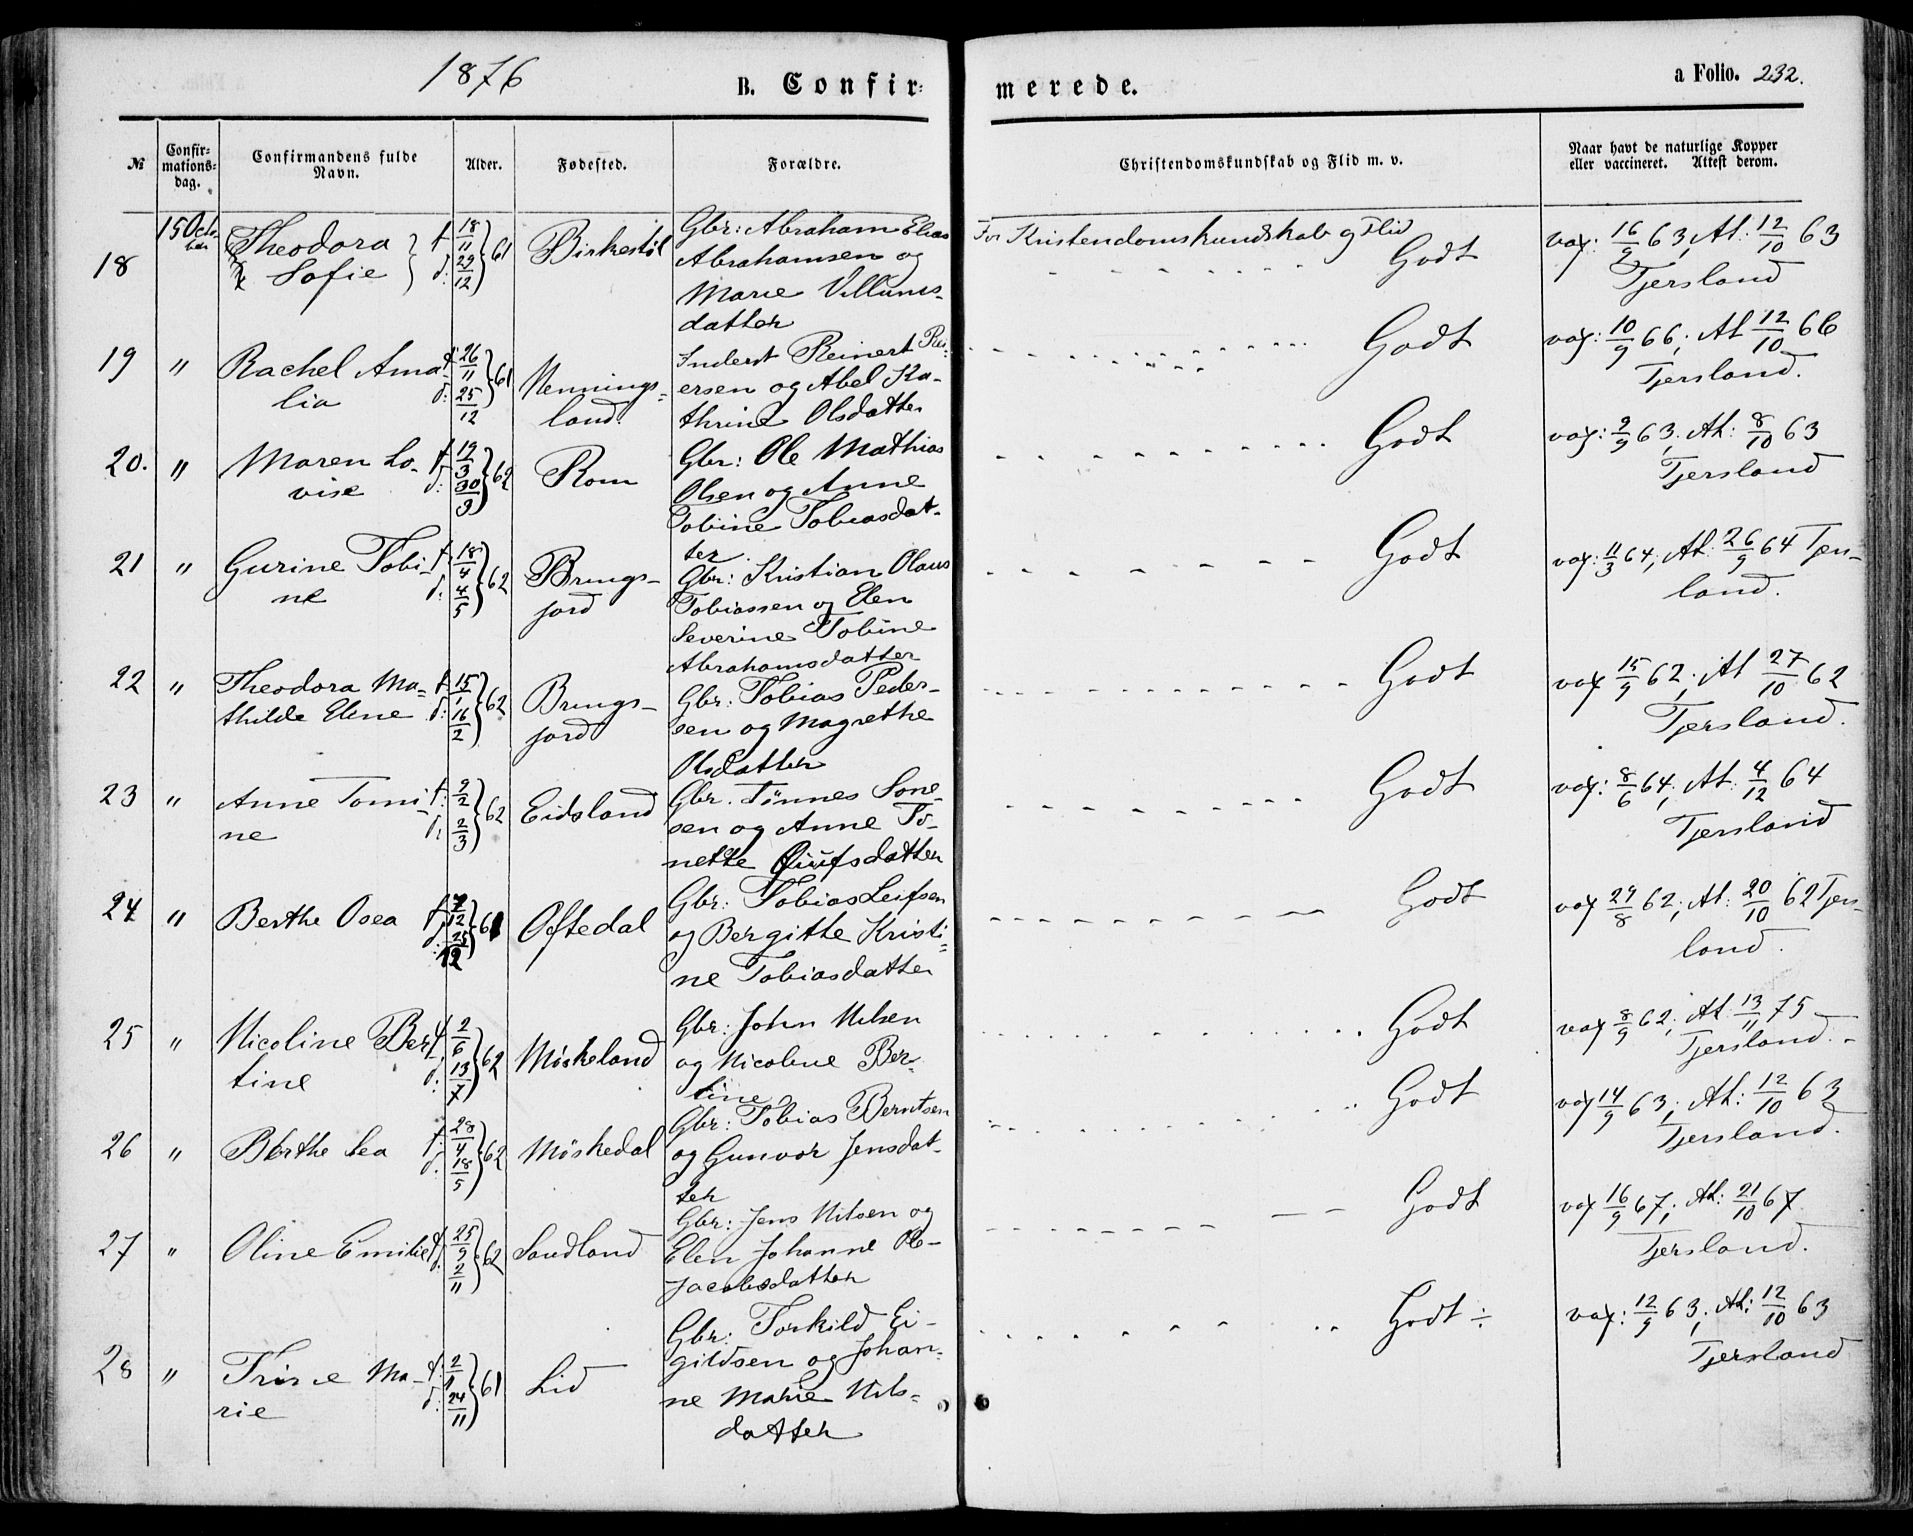 1876
B. Confir-
merede.
a Folio. 232.
№
Confir-
mations-
dag.
Confirmandens fulde
Navn.
Alder.
Fødested.
Forældre.
Christendomskundskab og Flid m. v.
Naar havt de naturlige Kopper
eller vaccineret. Attest derom.
18
15 Octo-
ber
Theodora
Sofie
f. 18/11
d: 29/12 } 61
Birkestøl
Gbr: Abraham Elias
Abrahamsen og
Marie Villums-
datter
For Kristendomskundskab og Flid
Godt
vax: 16/9 63, At: 12/10 63
Tjersland
19 " Rachel Ama-
lia
f. 26/11
d: 25/12 } 61
Nennings-
land.
Inderst Reinert Rei-
ersen og Abel Ka-
thrine Olsdatter
Godt
vax: 10/9 66; At 12/10 66
Tjersland.
20. " Maren Lo-
vise
f. 19/3
d: 30/3 } 62
Rom
Gbr: Ole Mathias
Olsen og Anne
Tobine Tobiasdat-
ter
Godt
vax: 9/9 63, At: 8/10 63
Tjersland
21 " Gurine Tobi-
ne
f. 18/4
d: 4/5 } 62
Brungs-
jord
Gbr: Kristian Olaus
Tobiassen og Elen
Severine Tobine
Abrahamsdatter
Godt
vax: 11/3 64, At: 26/9 64 Tjers-
land.
22 " Theodora Ma-
thilde Elene
f. 15/1
d: 16/2 } 62
Brungs-
jord
Gbr: Tobias Peder-
sen og Magrethe
Olsdatter
Godt
vax 15/9 62; At 27/10 62
Tjersland.
23 " Anne Tomi-
ne
f. 2/2
d: 2/3 } 62
Eidsland
Gbr. Tønnes Søne-
sen og Anne To-
nette
Godt
vax: 8/6 64; At: 4/12 64
Tjersland
24 " Berthe Osea
f. 7/12
d: 25/12 } 61
Oftedal
Gbr: Tobias Leifsen
og Bergitte Kristi-
ne Tobiasdatter
Godt
vax 29/8 62; At: 20/10 62 Tjers-
land.
25 " Nicoline Ber-
tine
f. 2/6
d: 13/7 } 62
Møskeland
Gbr: John Nilsen
og Nicoline Ber-
tine
Godt
vax 8/9 62; At 13/11 75
Tjersland.
26 " Berthe Lea
f. 28/4
d. 18/5 } 62
Møskedal
Gbr: Tobias Berntsen
og Gunvor Jensdat-
ter
Godt
vax 14/9 63; At: 12/10 63
Tjersland.
27 " Oline Emilie
f. 25/9
d. 2/11 } 62
Sandland
Gbr: Jens Nilsen og
Elen Johanne Ole
Jacobsdatter
Godt
vax 16/9 67; At: 21/10 67.
Tjersland.
28 " Trine Ma-
rie
f. 2/11
d: 24/11 } 61
Lid
Gbr: Torkild Ei-
gildsen og Johan-
ne Marie Nils-
datter
Godt ÷
vax: 12/9 63; At: 12/10 63
Tjersland